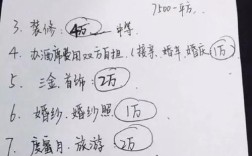 7500一平方
3、装修：4万 中等
4、办酒席费用双方自担、（接亲、婚车、婚庆）1万
5、三金首饰：2万
6、婚纱、婚纱照 1万
7、度蜜月、旅游 2万